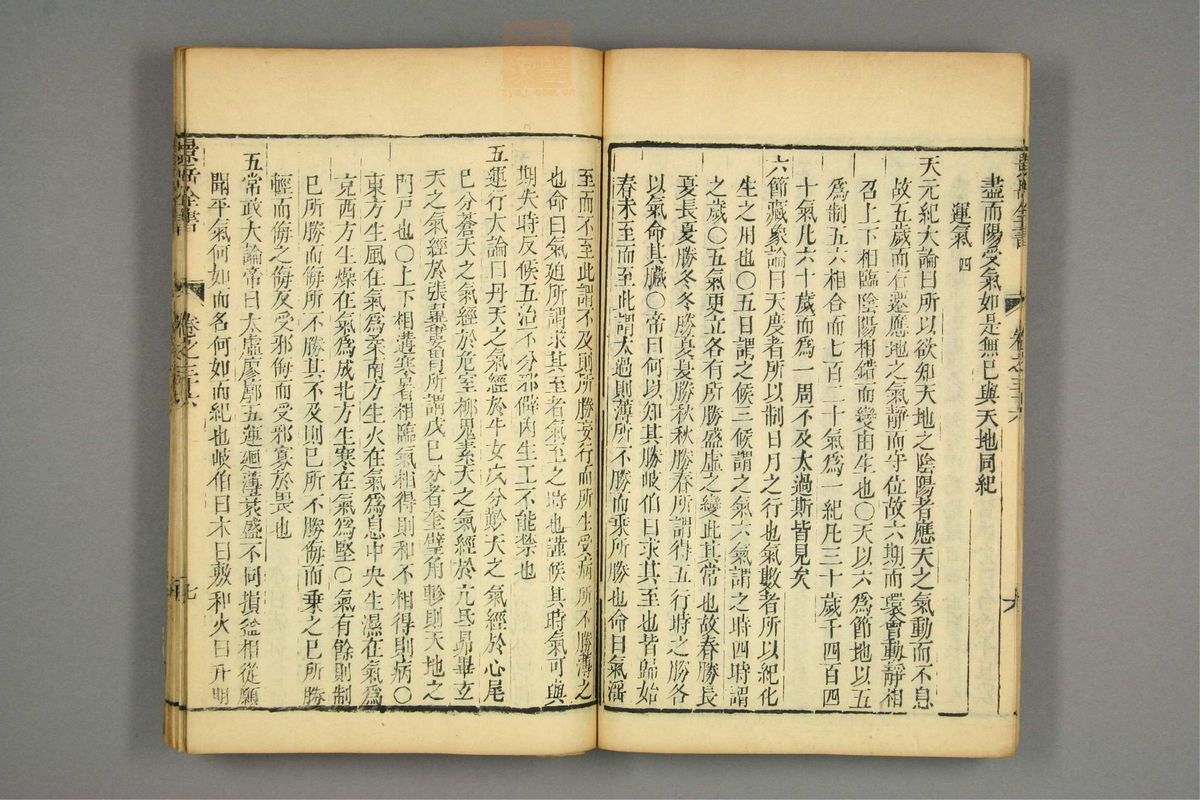 盡而陽受氣如是無已與天地同紀
運氣 四
天元紀大論曰所以欲知天地之陰陽者應天之氣動而不息
故五歲而右遷應地之氣靜而守位故六期而環會動靜相
召上下相臨陰陽相錯而變由生也○天以六為節地以五
為制五六相合而七百二十氣為一紀凡三十歲千四百四
十氣凡六十歲而為一周不及太過斯皆見矣
六節藏象論曰天度者所以制日月之行也氣數者所以紀化
生之用也○五日謂之候三候謂之氣六氣謂之時四時謂
之歲○五氣更立各有所勝盛虛之變此其常也故春勝長
夏長夏勝冬冬勝夏夏勝秋秋勝春所謂得五行時之勝各
以氣命其臟○帝曰何以知其勝岐伯曰求其至也皆歸始
春未至而至此謂太過則薄所不勝而乘所勝也命曰氣淫
至而不至此謂不及則所勝妄行而所生受病所不勝薄之
也命曰氣迫所謂求其至者氣至之時也謹候其時氣可與
期失時反候五治不分邪僻內生工不能禁也
五運行大論曰丹天之氣經於牛女戊分黅天之氣經於心尾
已分蒼天之氣經於危室柳鬼素天之氣經於亢氐昴畢玄
天之氣經於張翼婁胃所謂戊已分者奎璧角軫則天地之
門戶也○上下相遘寒暑相臨氣相得則和不相得則病○
東方生風在氣為柔南方生火在氣為息中央生濕在氣為
充西方生燥在氣為成北方生寒在氣為堅○氣有餘則制
已所勝而侮所不勝其不及則已所不勝侮而乘之已所勝
輕而侮之侮反受邪侮而受邪寡於畏也
五常政大論帝曰太虛廖廓五運廻薄衰盛不同損益相從願
聞平氣何如而名何如而紀也岐伯曰木曰敷和火曰升明
景岳全書
卷之三
七
卷之三
六